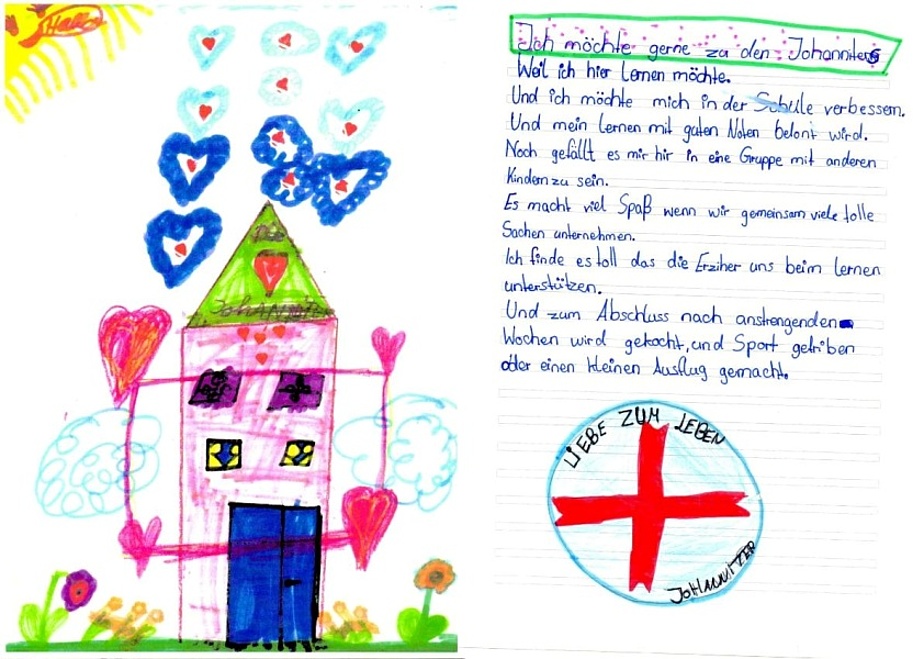 Die
JOHANNITER
Ich möchte gerne zu den Johanniter
Weil ich hier Lernen möchte.
Und ich möchte mich in der Schule verbessern.
Und mein Lernen mit guten Noten belont wird.
Noch gefällt es mir hir in eine Gruppe mit anderen
Kindern zu sein.
Es macht viel Spaß wenn wir gemeinsam viele tolle
Sachen unternehmen.
Ich finde es toll das die Erziher uns beim Lernen
unterstützen.
Und zum Abschluss nach anstrengenden
Wochen wird gekocht, und Sport getriben
oder einen kleinen Ausflug gemacht.
LIEBE ZUM LEBEN
JOHANNITZER